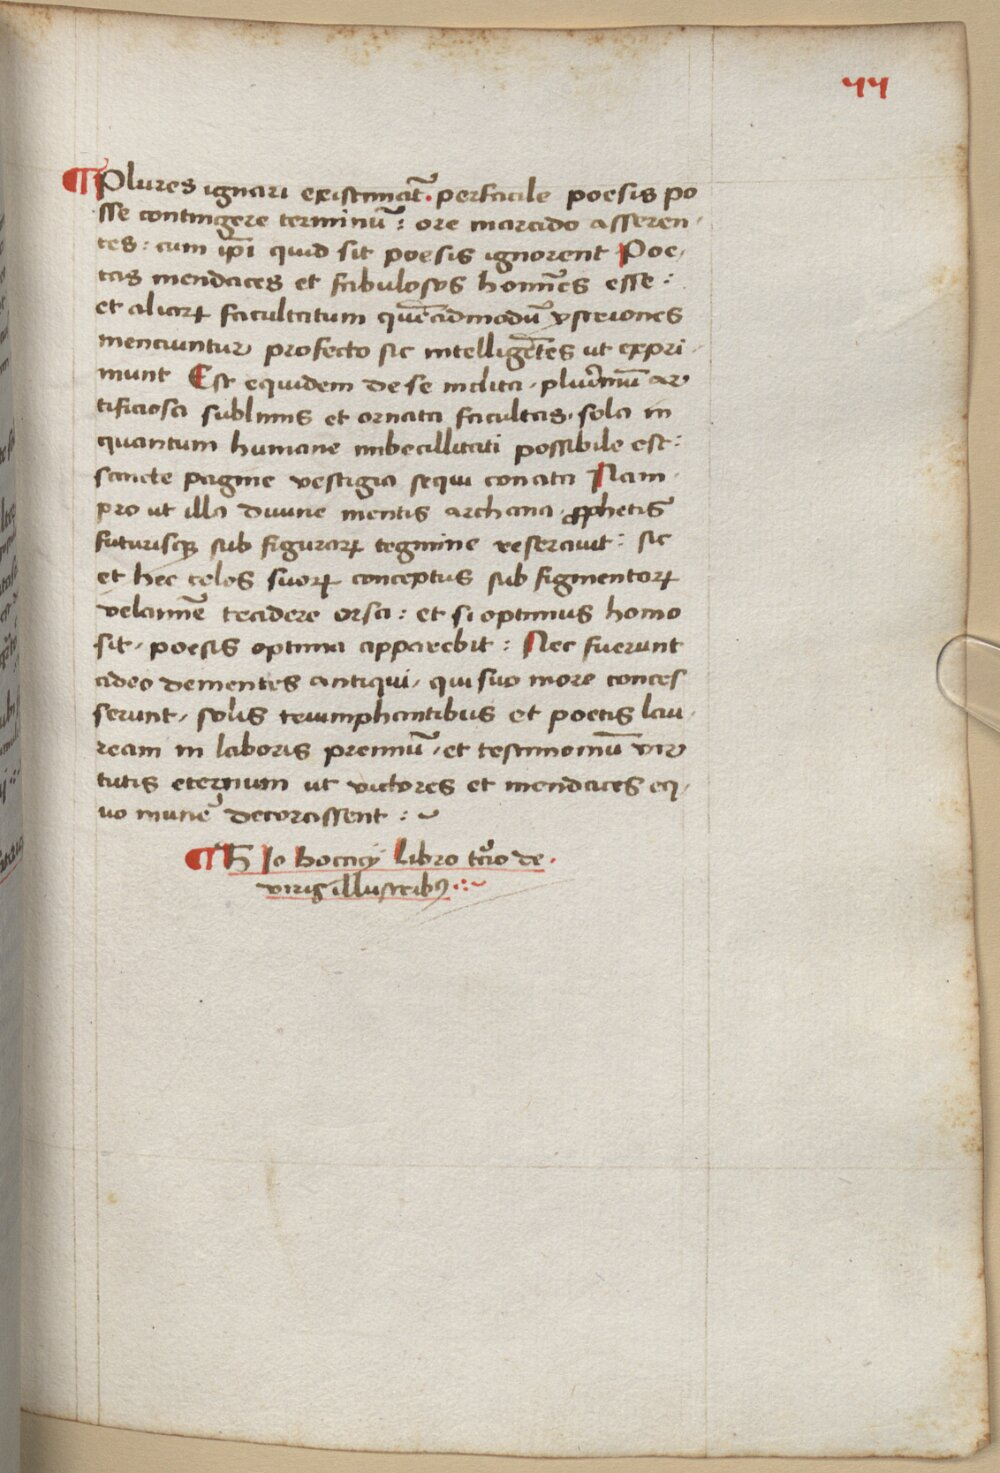 44
¶ Plures ignari existimāt. perfacile poesis po
sse contingere terminū: ore marcido asseren-
tes: cum ip̄i quid sit poesis ignorent Poe-
tas mendaces et fabulosos homīes esse:
et aliaꝝ facultatum quēadmodū ystriones
menciuntur profecto sic intelligētes ut expri-
munt Est equidem de se inclita, plurimū ar
tificiosa sublimis et ornata facultas, sola in
quantum humane imbecillitati possibile est:
sancte pagine vestigia sequi conata Nam
pro ut illa diuine mentis archana, ꝓphetis
futurisqꝫ sub figuraꝝ tegmine reserauit: sic
et hec celos suoꝝ conceptus sub figmentoꝝ
velamīe tradere orsa: et si optimus homo
sit, poesis optima apparebit: Nec fuerunt
adeo dementes antiqui, qui suo more conces
serunt, solis triumphantibus et poetis lau-
ream in laboris premiū, et testimoniū vir
tutis eternum ut victores et mendaces eq-
uo munē decorassent:
¶ H̄ Jo boccacij libro tc̄io de.
viris illustribꝰ